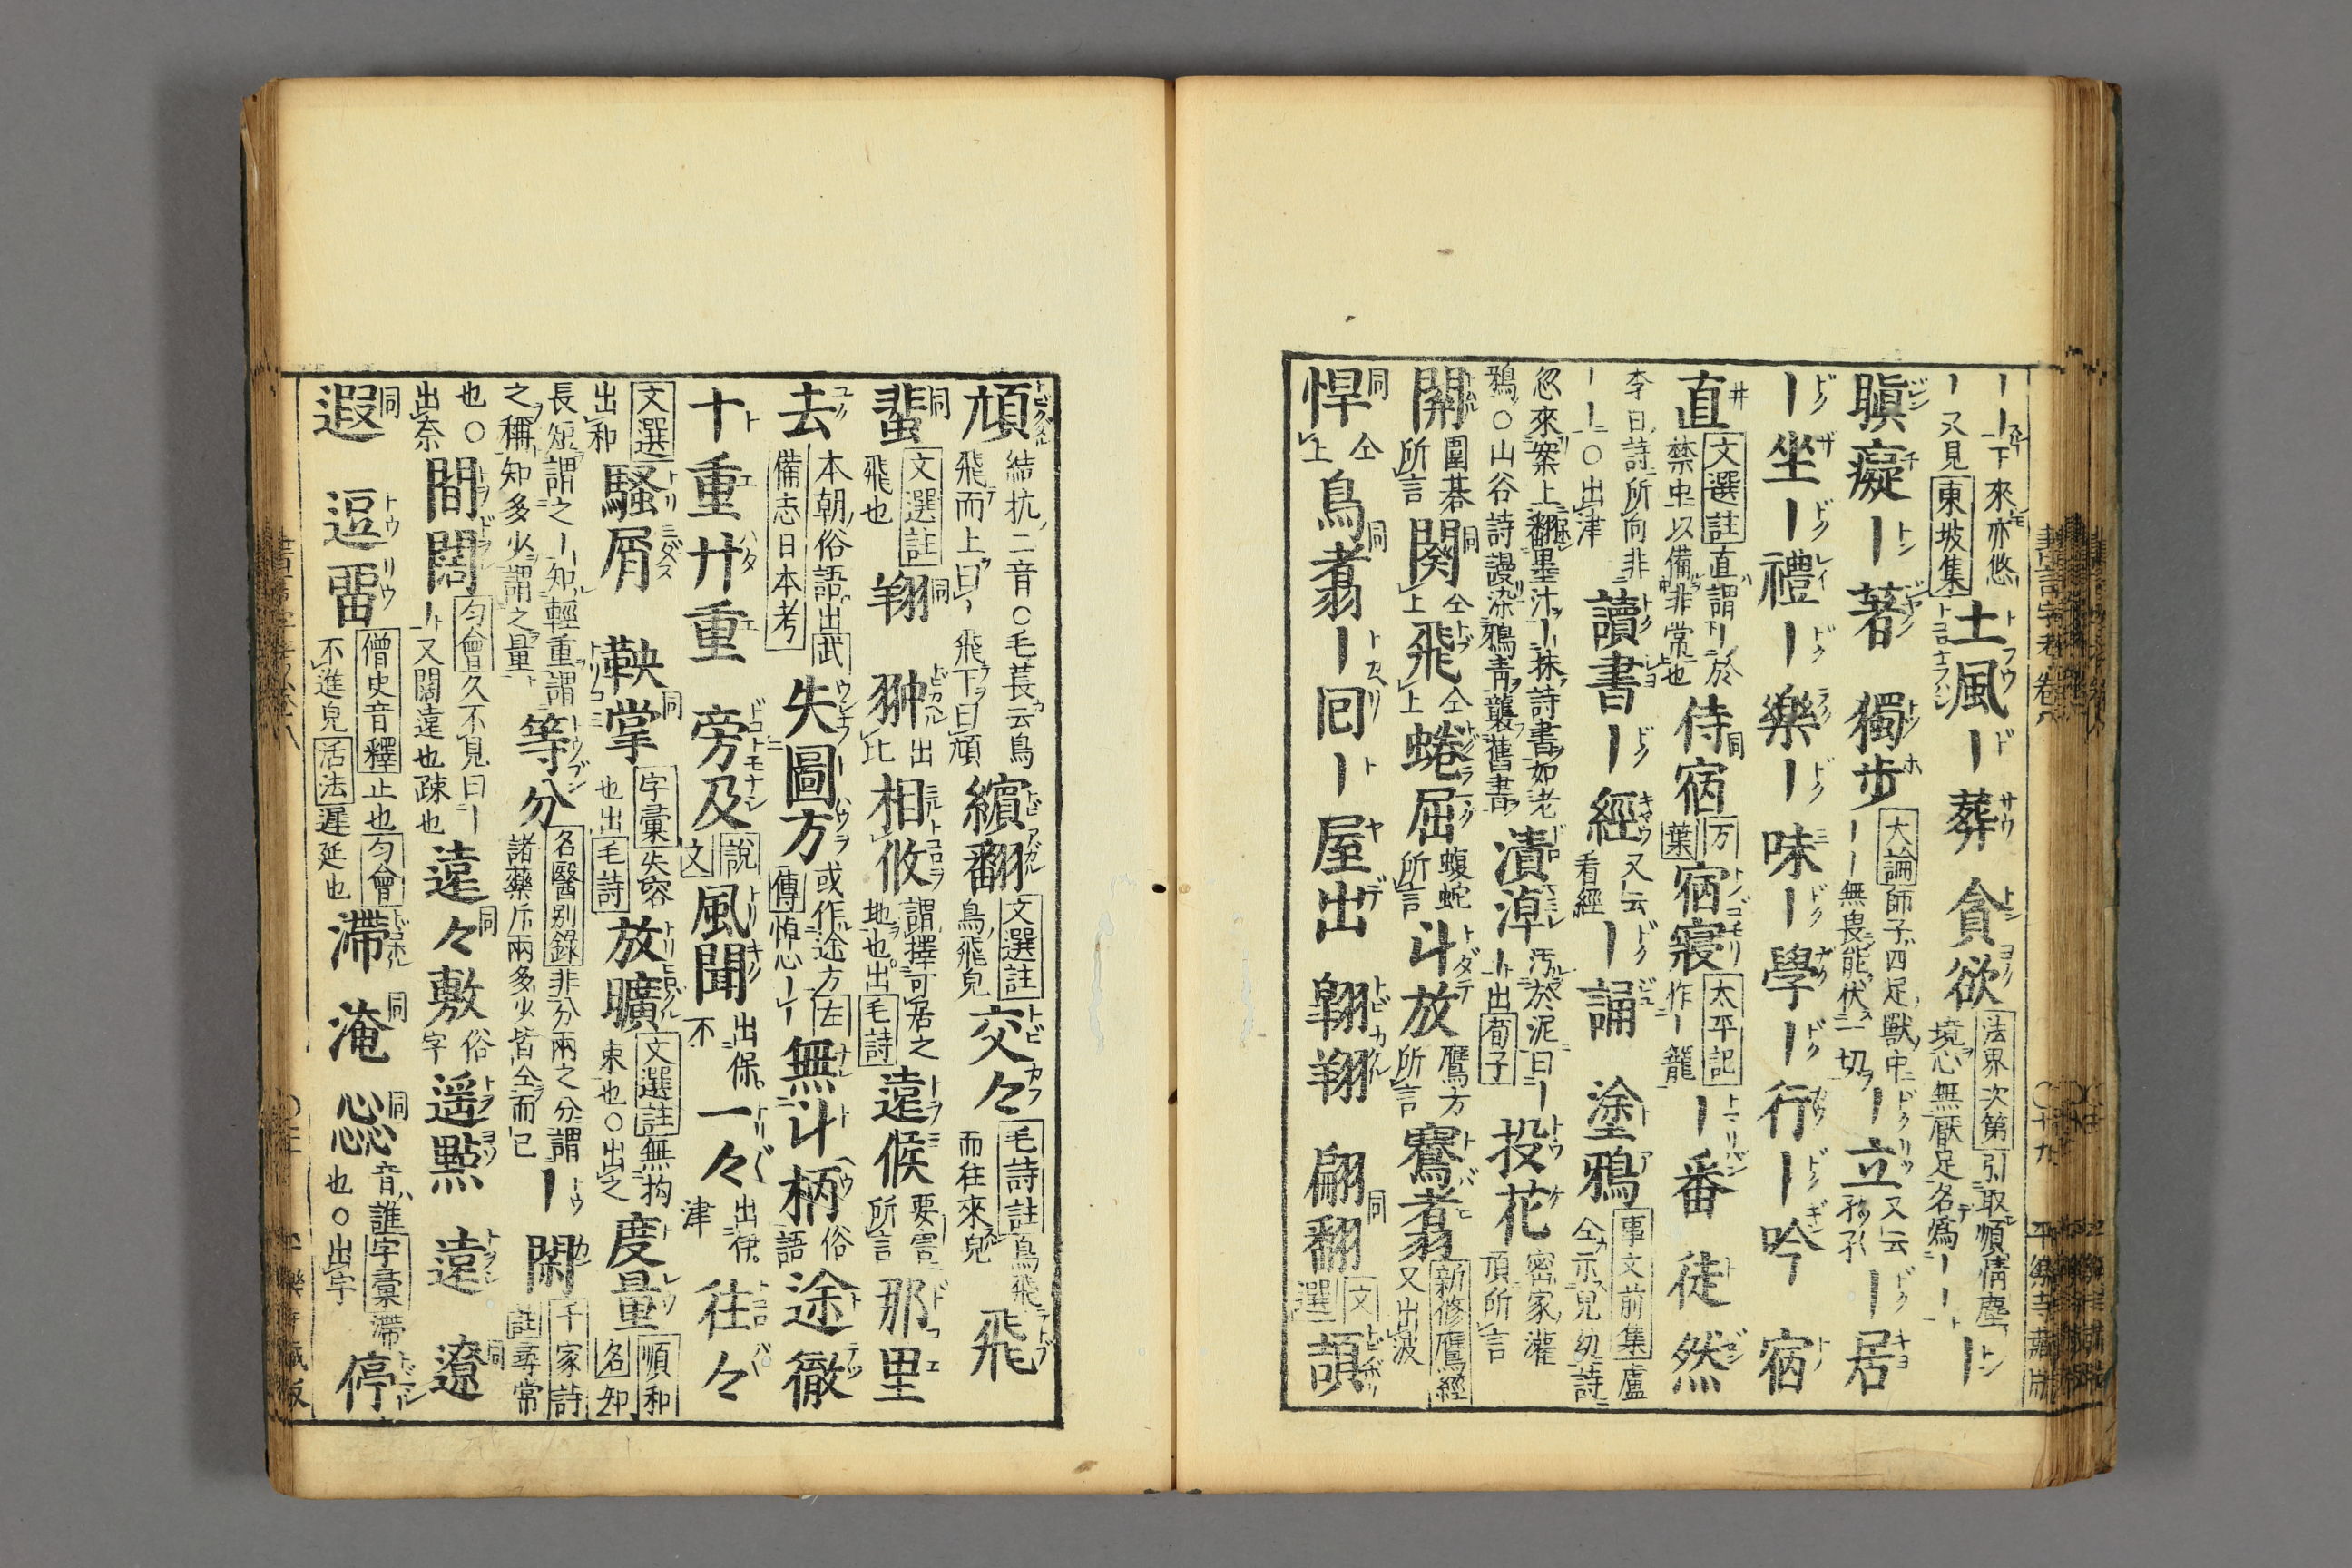 ーー下來亦悠
ー又見東坡集
土風ー葬 貪欲 法界次第引取順情塵
境心無厭足名爲ーー ー
瞋癡ー著 獨步 大論師子四足獸中
ーー無畏能伏一切 ー立 又云 ー居
ー坐ー禮ー樂ー味ー學ー行ー吟 宿
直 文選註直謂ー於
禁中以備非常也 侍宿 万葉 宿寢 太平記
作ー籠 ー番 徒然
李白詩所向非
ーー○出津 讀書ー經 又云
看經 ー誦 塗鴉 事文前集盧
仝示兒幼詩
忽來案上翻墨汁ー抹詩書如老
鴉○山谷詩謾染鴉靑襲舊書 漬淖 汚於泥曰ー
ー出荀子 投花 密家灌
頂所言
開 圍碁
所言 関 仝上 飛 仝上 蜷屈 蝮蛇
所言 斗放 鷹方
所言 騫翥 新修鷹經
又出波
悍 仝上 鳥翥ー回ー屋出 翺翔 翩翻 文選 頡
頏 結抗二音○毛萇云鳥
飛而上曰ー飛下曰頏 繽翻 文選註
鳥飛皃 交々 毛詩註鳥飛
而往來皃 飛
蜚 文選註
飛也 翔 翀 出比 相攸 謂擇可居之
地也出毛詩 遠候 要害
所言 那里
去 本朝俗語出武
備志日本考 失圖方 或作途方左
傳悼心ーー 無斗柄 俗語 途徹
十重廿重 旁及 說文 風聞 出保
不 一々 出伊
津 往々
文選
出和 騷屑 鞅掌 字彙失容
也出毛詩 放曠 文選註無拘
束也○出之 度量 順和
名知
長短謂之ー知輕重謂
之稱知多少謂之量 等分 名醫别錄非分兩之分謂
諸藥斤兩多少皆仝而已 ー閑 千家詩
註尋常
也○
出奈 間闊 匀會久不見曰ー
ー又闊遠也疎也 遠々敷 俗字 遥點 遠 遼
遐 逗畱 僧史音釋止也匀會
不進皃活法遲延也 滯 淹 惢 音誰字彙滯
也○出宇 停